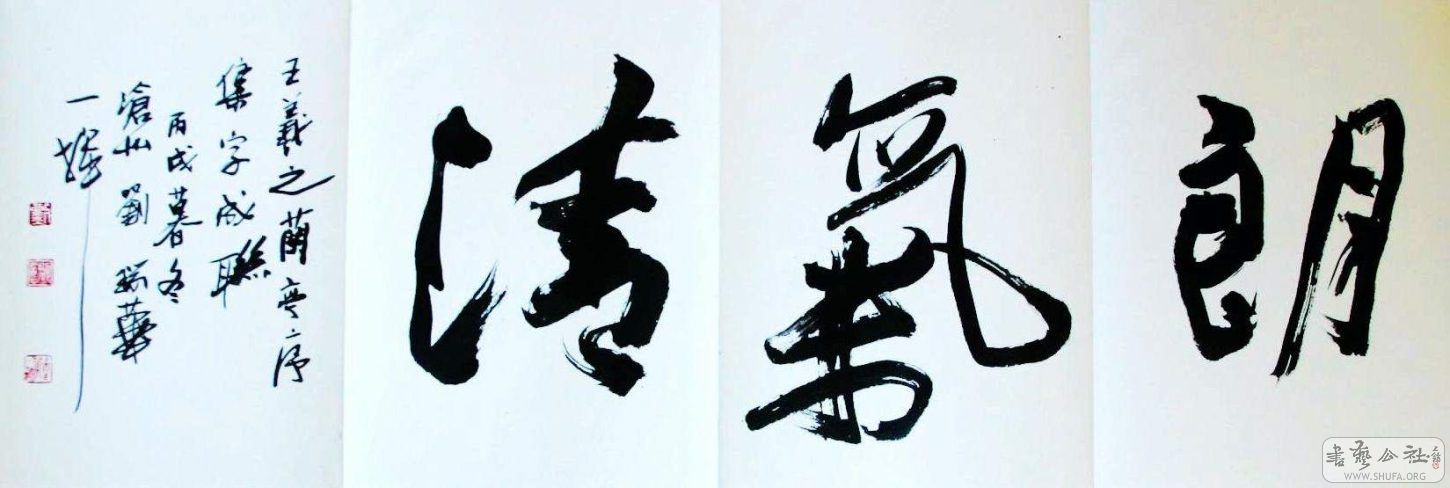 朗氣清
王羲之蘭亭序
集字成聯
丙戌暮冬
滄州劉瑞華
一揮
書藝公社
WWW.SHUFA.ORG